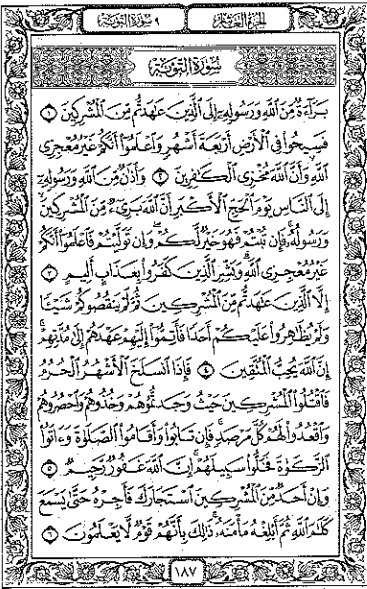 الجزء العاشر ٩ سورة التوبة
سورة التوبة
بَرَآءَةٌ مِّنَ ٱللَّهِ وَرَسُولِهِۦٓ إِلَى ٱلَّذِينَ عَٰهَدتُّم مِّنَ ٱلْمُشْرِكِينَ ١
فَسِيحُوا۟ فِى ٱلْأَرْضِ أَرْبَعَةَ أَشْهُرٍ وَٱعْلَمُوٓا۟ أَنَّكُمْ غَيْرُ مُعْجِزِى
ٱللَّهِ وَأَنَّ ٱللَّهَ مُخْزِى ٱلْكَٰفِرِينَ ٢ وَأَذَٰنٌ مِّنَ ٱللَّهِ وَرَسُولِهِۦٓ
إِلَى ٱلنَّاسِ يَوْمَ ٱلْحَجِّ ٱلْأَكْبَرِ أَنَّ ٱللَّهَ بَرِىٓءٌ مِّنَ ٱلْمُشْرِكِينَ
وَرَسُولُهُۥ فَإِن تُبْتُمْ فَهُوَ خَيْرٌ لَّكُمْ وَإِن تَوَلَّيْتُمْ فَٱعْلَمُوٓا۟ أَنَّكُمْ
غَيْرُ مُعْجِزِى ٱللَّهِ وَبَشِّرِ ٱلَّذِينَ كَفَرُوا۟ بِعَذَابٍ أَلِيمٍ ٣
إِلَّا ٱلَّذِينَ عَٰهَدتُّم مِّنَ ٱلْمُشْرِكِينَ ثُمَّ لَمْ يَنقُصُوكُمْ شَيْـًٔا
وَلَمْ يُظَٰهِرُوا۟ عَلَيْكُمْ أَحَدًا فَأَتِمُّوٓا۟ إِلَيْهِمْ عَهْدَهُمْ إِلَىٰ مُدَّتِهِمْ
إِنَّ ٱللَّهَ يُحِبُّ ٱلْمُتَّقِينَ ٤ فَإِذَا ٱنسَلَخَ ٱلْأَشْهُرُ ٱلْحُرُمُ
فَٱقْتُلُوا۟ ٱلْمُشْرِكِينَ حَيْثُ وَجَدتُّمُوهُمْ وَخُذُوهُمْ وَٱحْصُرُوهُمْ
وَٱقْعُدُوا۟ لَهُمْ كُلَّ مَرْصَدٍ فَإِن تَابُوا۟ وَأَقَامُوا۟ ٱلصَّلَوٰةَ وَءَاتَوُا۟
ٱلزَّكَوٰةَ فَخَلُّوا۟ سَبِيلَهُمْ إِنَّ ٱللَّهَ غَفُورٌ رَّحِيمٌ ٥
وَإِنْ أَحَدٌ مِّنَ ٱلْمُشْرِكِينَ ٱسْتَجَارَكَ فَأَجِرْهُ حَتَّىٰ يَسْمَعَ
كَلَٰمَ ٱللَّهِ ثُمَّ أَبْلِغْهُ مَأْمَنَهُۥ ذَٰلِكَ بِأَنَّهُمْ قَوْمٌ لَّا يَعْلَمُونَ ٦
١٨٧